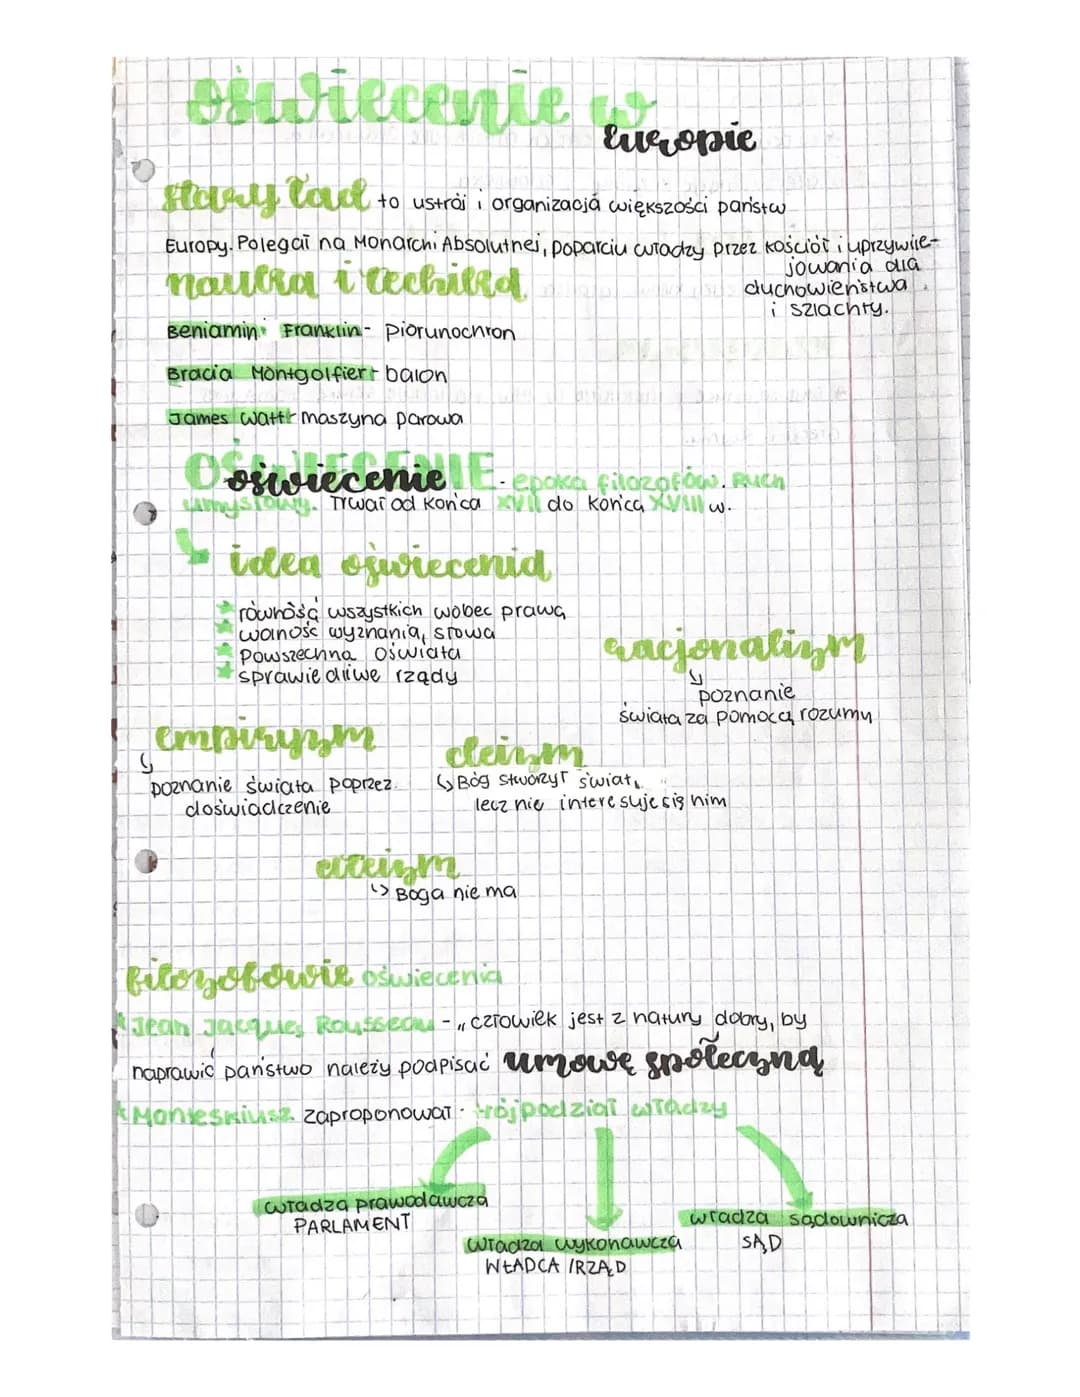 oświecenie w
Europie
stary ład to ustrój i organizacja większości państw
Europy. Polegał na Monarchi Absolutnej, poparciu władzy przez kościół i uprzywile-
jowania dla
duchowieństwa
i szlachty.
nauka i techika
Beniamin Franklin - piorunochron
Bracia Montgolfier - balon
James Watt - maszyna parowa
OŚWIECENIE oświecenie - epoka filozofów. Ruch
umysłowy. Trwał od końca XVII do końca XVIII w.
idea oświecenia
równość wszystkich wobec prawa
wolność wyznania, słowa
Powszechna oświata
sprawiedliwe rządy
racjonalizm
poznanie
świata za pomocą rozumu
empiryzm
poznanie świata poprzez
doświadczenie
deizm
Bóg stworzył świat,
lecz nie interesuje się nim
ateizm
Boga nie ma
filozofowie oświecenia
Jean Jacques Rousseau - „człowiek jest z natury dobry, by
naprawić państwo należy podpisać umowę społeczną
Monteskiusz zaproponował trójpodział władzy
władza prawodawcza
PARLAMENT
władza wykonawcza
WŁADCA / RZĄD
władza sądownicza
SĄD